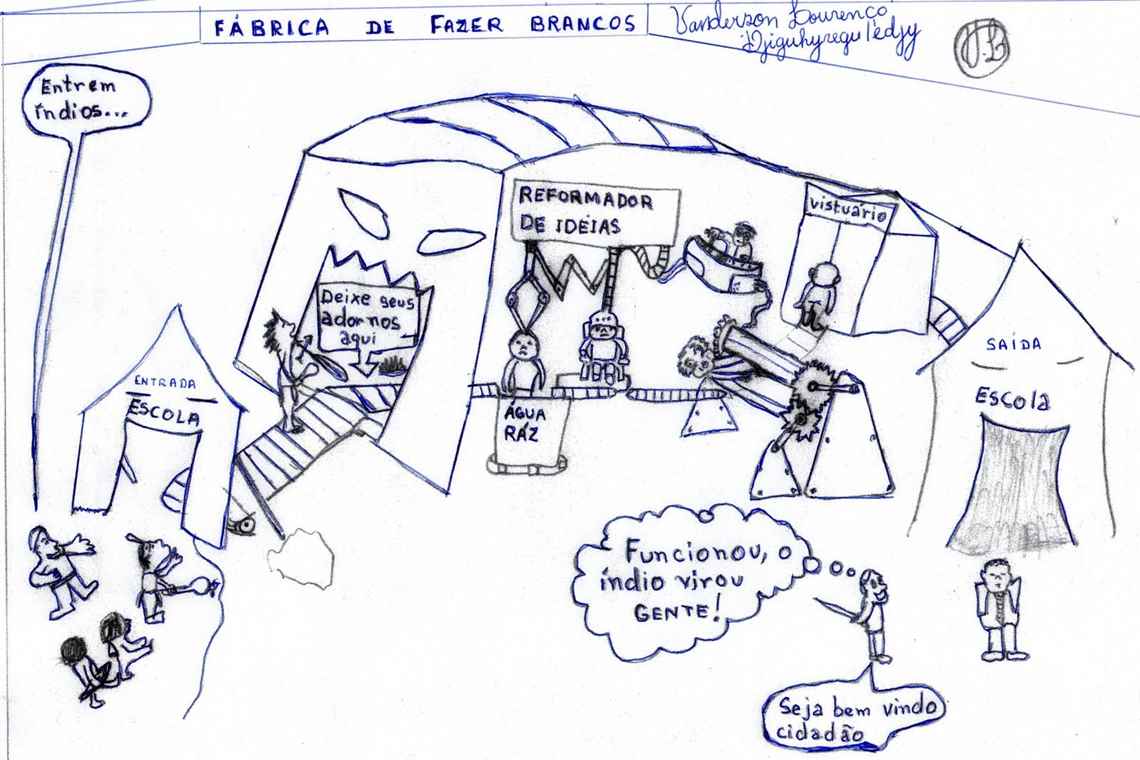 FÁBRICA DE FAZER BRANCOS
Vanderson Lourenço
Entrem
índios...
REFORMADOR
DE IDÉIAS
vistuário
Deixe seus
adornos
aqui
ENTRADA
ESCOLA
ÁGUA
RÁZ
SAÍDA
ESCOLA
Funcionou, o
índio virou
GENTE!
Seja bem vindo
cidadão